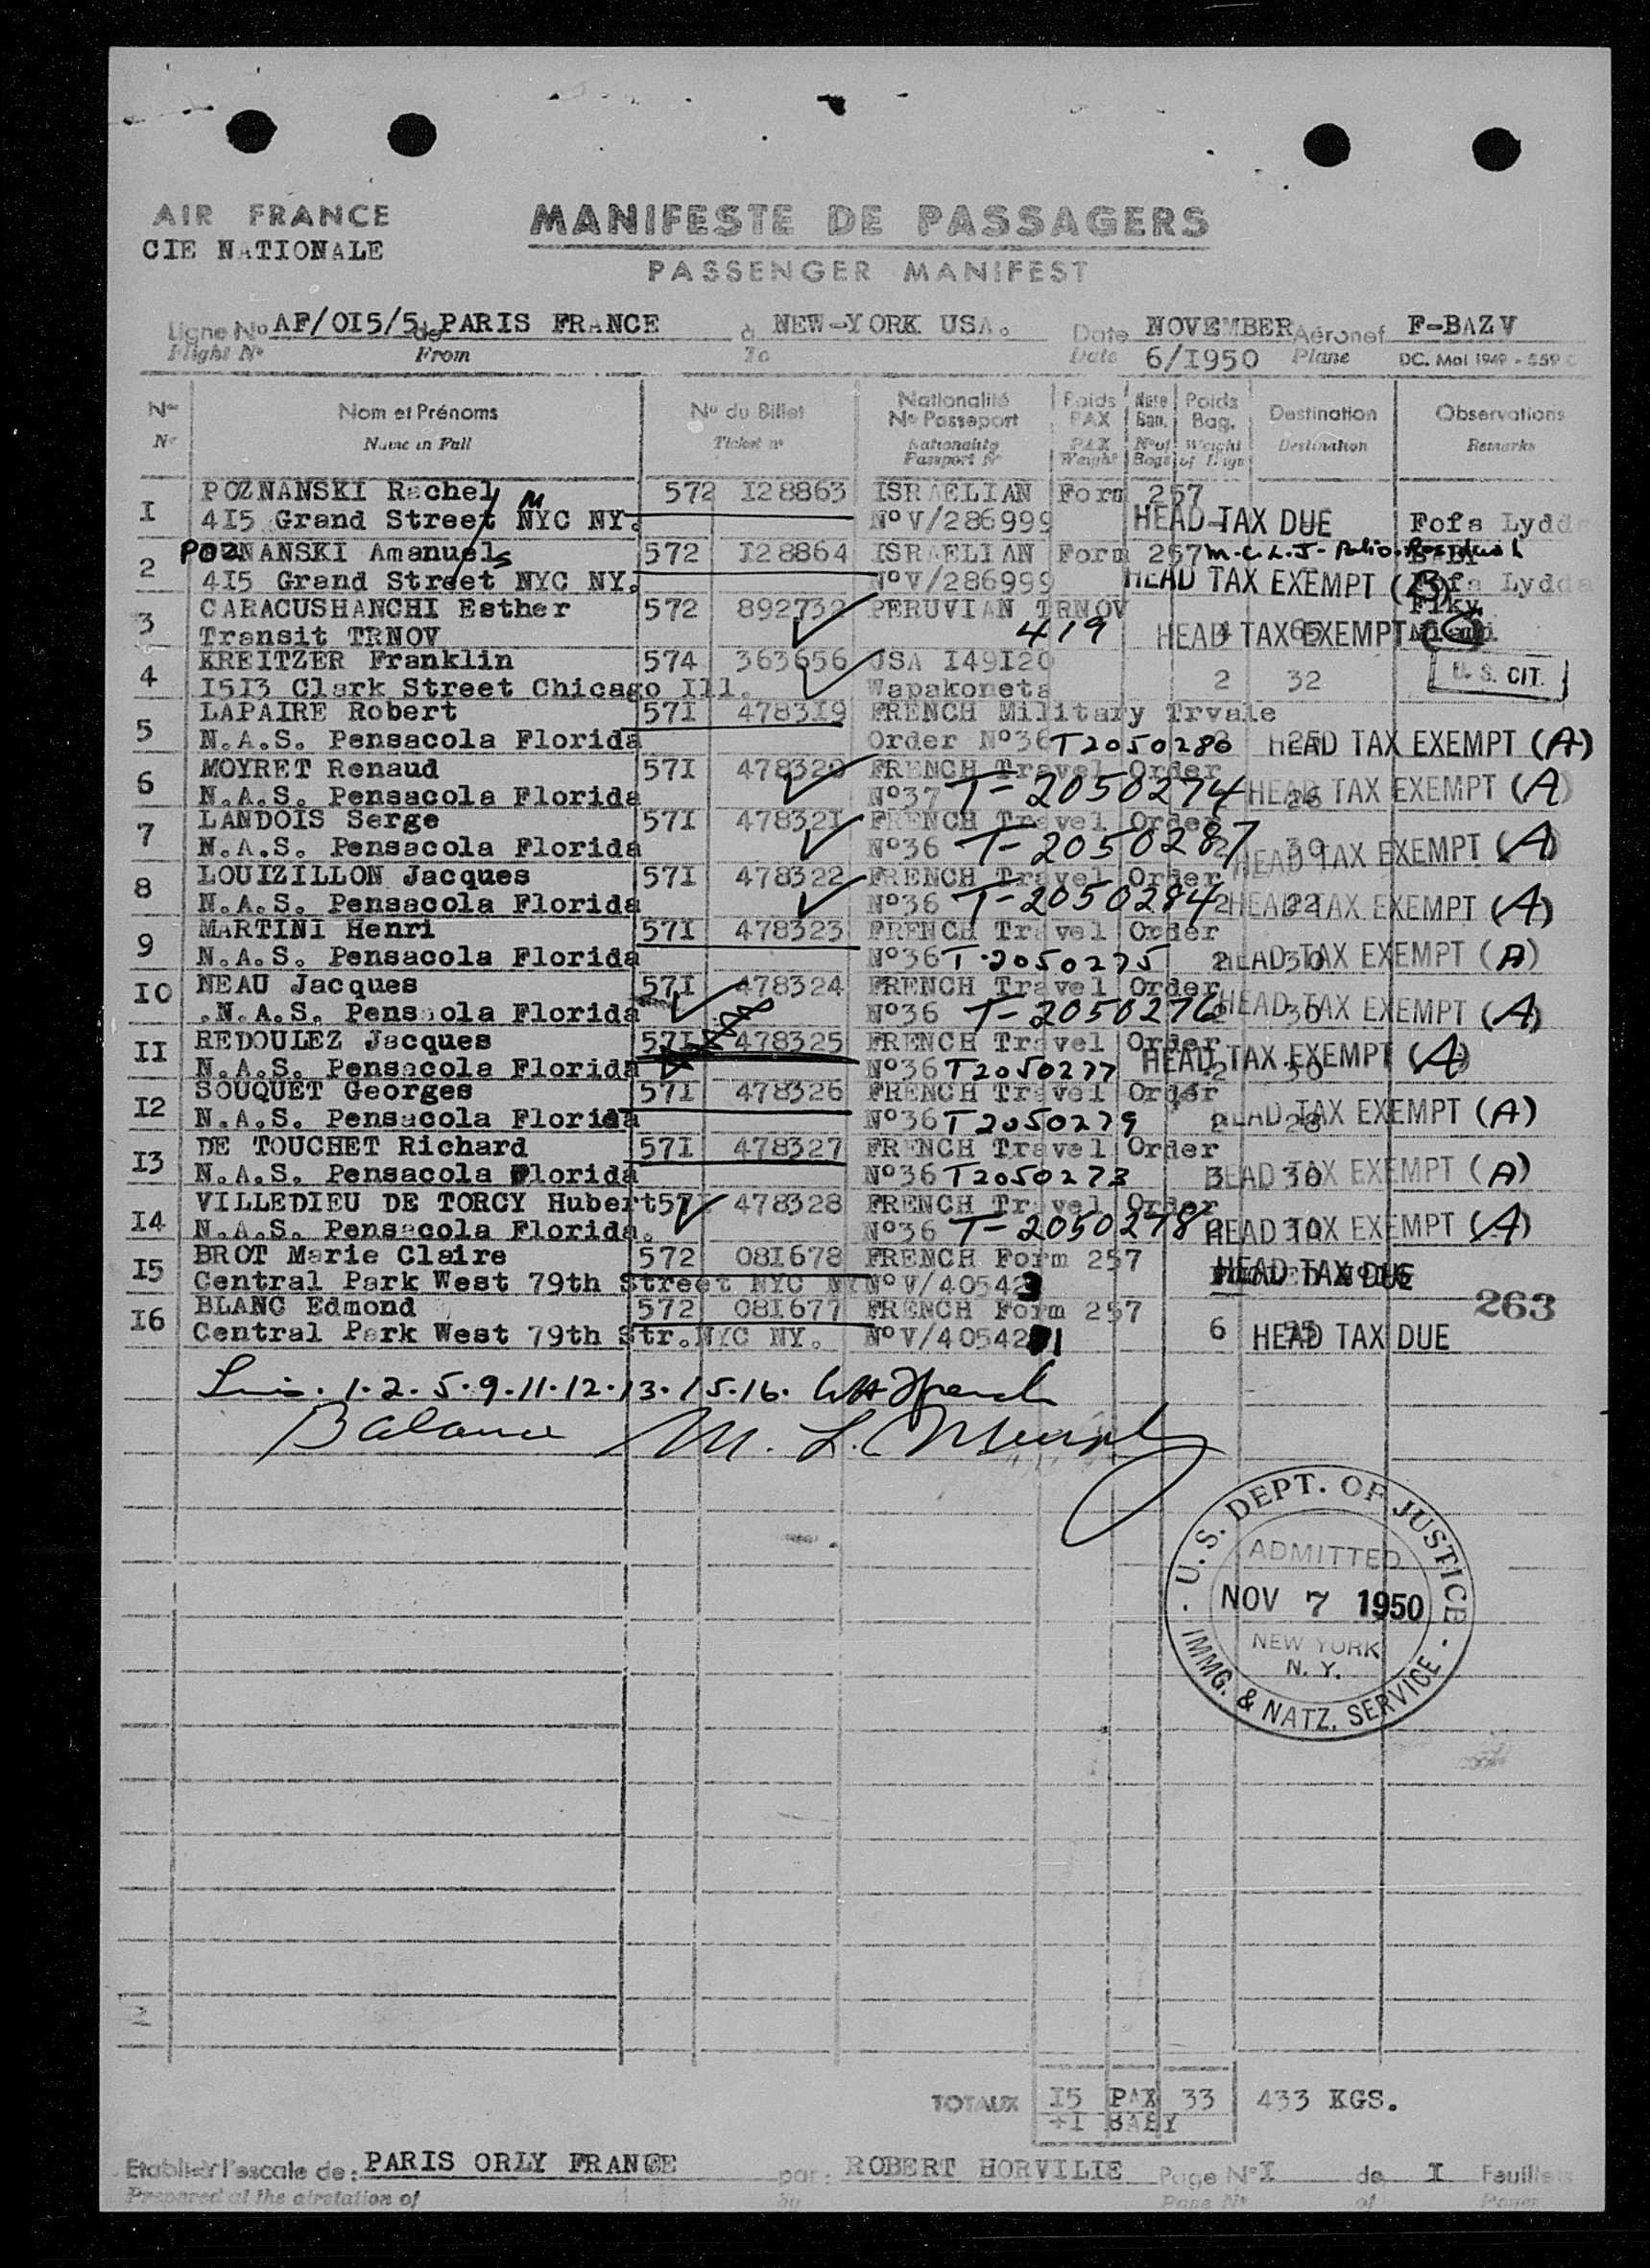 AIR FRANCE
CIE NATIONALE
MANIFESTE DE PASSAGERS
PASSENGER MANIFEST
Ligne No AF/OI5/5 de PARIS FRANCE à NEW-YORK USA. Date NOVEMBER Aéronef F-BAZV
Flight No From To Date 6/I950 Plane DC. Mai 1949 - 559
No Nom et Prénoms No du Billet Nationalité No Passeport Poids PAX Nbre Bag. Poids Bag. Destination Observations
No Name in Full Ticket no Nationality Passport No PAX Weight No of Bags Weight of Lugs Destination Remarks
I POZNANSKI Rachel M 572 I28863 ISRAELIAN Form 257
4I5 Grand Street NYC NY. No V/286999 HEAD TAX DUE Fofa Lydda
2 POZNANSKI Amanuels 572 I28864 ISRAELIAN Form 257 BABY
4I5 Grand Street NYC NY. No V/286999 HEAD TAX EXEMPT (B) Fofa Lydda
3 CARACUSHANCHI Esther 572 892732 PERUVIAN TRNOV
Transit TRNOV 419 HEAD TAX EXEMPT 65
4 KREITZER Franklin 574 363656 USA I49I20
I5I3 Clark Street Chicago Ill. Wapakoneta 2 32 U.S. CIT.
5 LAPAIRE Robert 57I 4783I9 FRENCH Military Trvale
N.A.S. Pensacola Florida Order No36 T2050280 HEAD TAX EXEMPT (A)
6 MOYRET Renaud 57I 478320 FRENCH Travel Order
N.A.S. Pensacola Florida No37 T-2050274 HEAD TAX EXEMPT (A)
7 LANDOIS Serge 57I 47832I FRENCH Travel Order
N.A.S. Pensacola Florida No36 T-2050287 2 30 HEAD TAX EXEMPT (A)
8 LOUIZILLON Jacques 57I 478322 FRENCH Travel Order
N.A.S. Pensacola Florida No36 T-2050284 2 22 HEAD TAX EXEMPT (A)
9 MARTINI Henri 57I 478323 FRENCH Travel Order
N.A.S. Pensacola Florida No36 T-2050275 2 30 HEAD TAX EXEMPT (A)
IO NEAU Jacques 57I 478324 FRENCH Travel Order
.N.A.S. Pensacola Florida No36 T-2050276 30 HEAD TAX EXEMPT (A)
II REDOULEZ Jacques 57I 478325 FRENCH Travel Order
N.A.S. Pensacola Florida No36 T2050277 2 30 HEAD TAX EXEMPT (A)
I2 SOUQUET Georges 57I 478326 FRENCH Travel Order
N.A.S. Pensacola Florida No36 T2050279 2 28 HEAD TAX EXEMPT (A)
I3 DE TOUCHET Richard 57I 478327 FRENCH Travel Order
N.A.S. Pensacola Florida No36 T2050273 3 30 HEAD TAX EXEMPT (A)
I4 VILLEDIEU DE TORCY Hubert 57I 478328 FRENCH Travel Order
N.A.S. Pensacola Florida. No36 T-2050278 HEAD TAX EXEMPT (A)
I5 BROT Marie Claire 572 08I678 FRENCH Form 257
Central Park West 79th Street NYC NY No V/405423 HEAD TAX DUE
263
I6 BLANC Edmond 572 08I677 FRENCH Form 257
Central Park West 79th Str. NYC NY. No V/405421 6 HEAD TAX DUE
1.2.5.9.11.12.13.15.16.
Balance M. L.
U.S. DEPT. OF JUSTICE
ADMITTED
NOV 7 1950
NEW YORK
N. Y.
IMMG. & NATZ. SERVICE
TOTAUX I5 PAX 33 433 KGS.
+I BABY
Etabli à l'escale de: PARIS ORLY FRANCE par: ROBERT HORVILIE Page No I de I Feuillets
Prepared at the airstation of by Page No of Pages